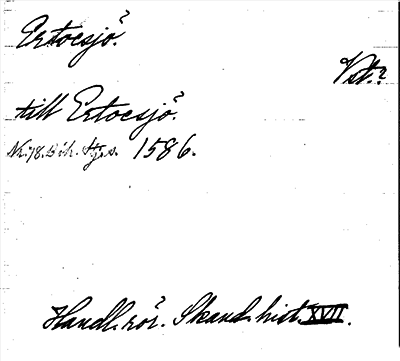 Ertoesjö?
Vst.?
till Ertoesjö?
Nr. 78. 1586.
Handl. rör. Skand. hist. XVII.